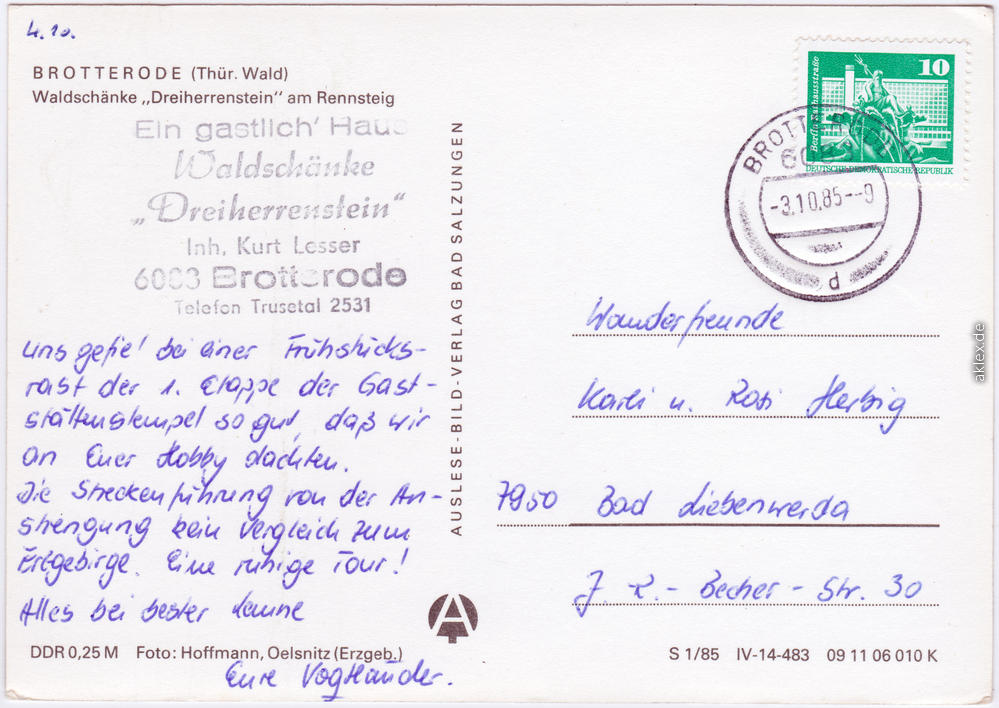 4.10.
BROTTERODE (Thür. Wald)
Waldschänke „Dreiherrenstein" am Rennsteig
Ein gastlich' Haus
Waldschänke
„Dreiherrenstein"
Inh. Kurt Lesser
6083 Brotterode
Telefon Trusetal 2531
Uns gefiel bei einer Frühstücks-
rast der 1. Etappe der Gast-
stättenstempel so gut, daß wir
an Euer Hobby dachten.
Die Streckenführung von der An-
strengung kein Vergleich zum
Erzgebirge. Eine ruhige Tour!
Alles bei bester Laune
Eure Vogtländer.
DDR 0,25 M Foto: Hoffmann, Oelsnitz (Erzgeb.)
AUSLESE-BILD-VERLAG BAD SALZUNGEN
10
Berlin, Rathausstraße
DEUTSCHE DEMOKRATISCHE REPUBLIK
BROTTERODE
6083
-3.10.85--9
d
Wanderfreunde
Karli u. Rosi Herbig
7950 Bad Liebenwerda
J.-R.-Becher-Str. 30
S 1/85 IV-14-483 09 11 06 010 K
aklex.de